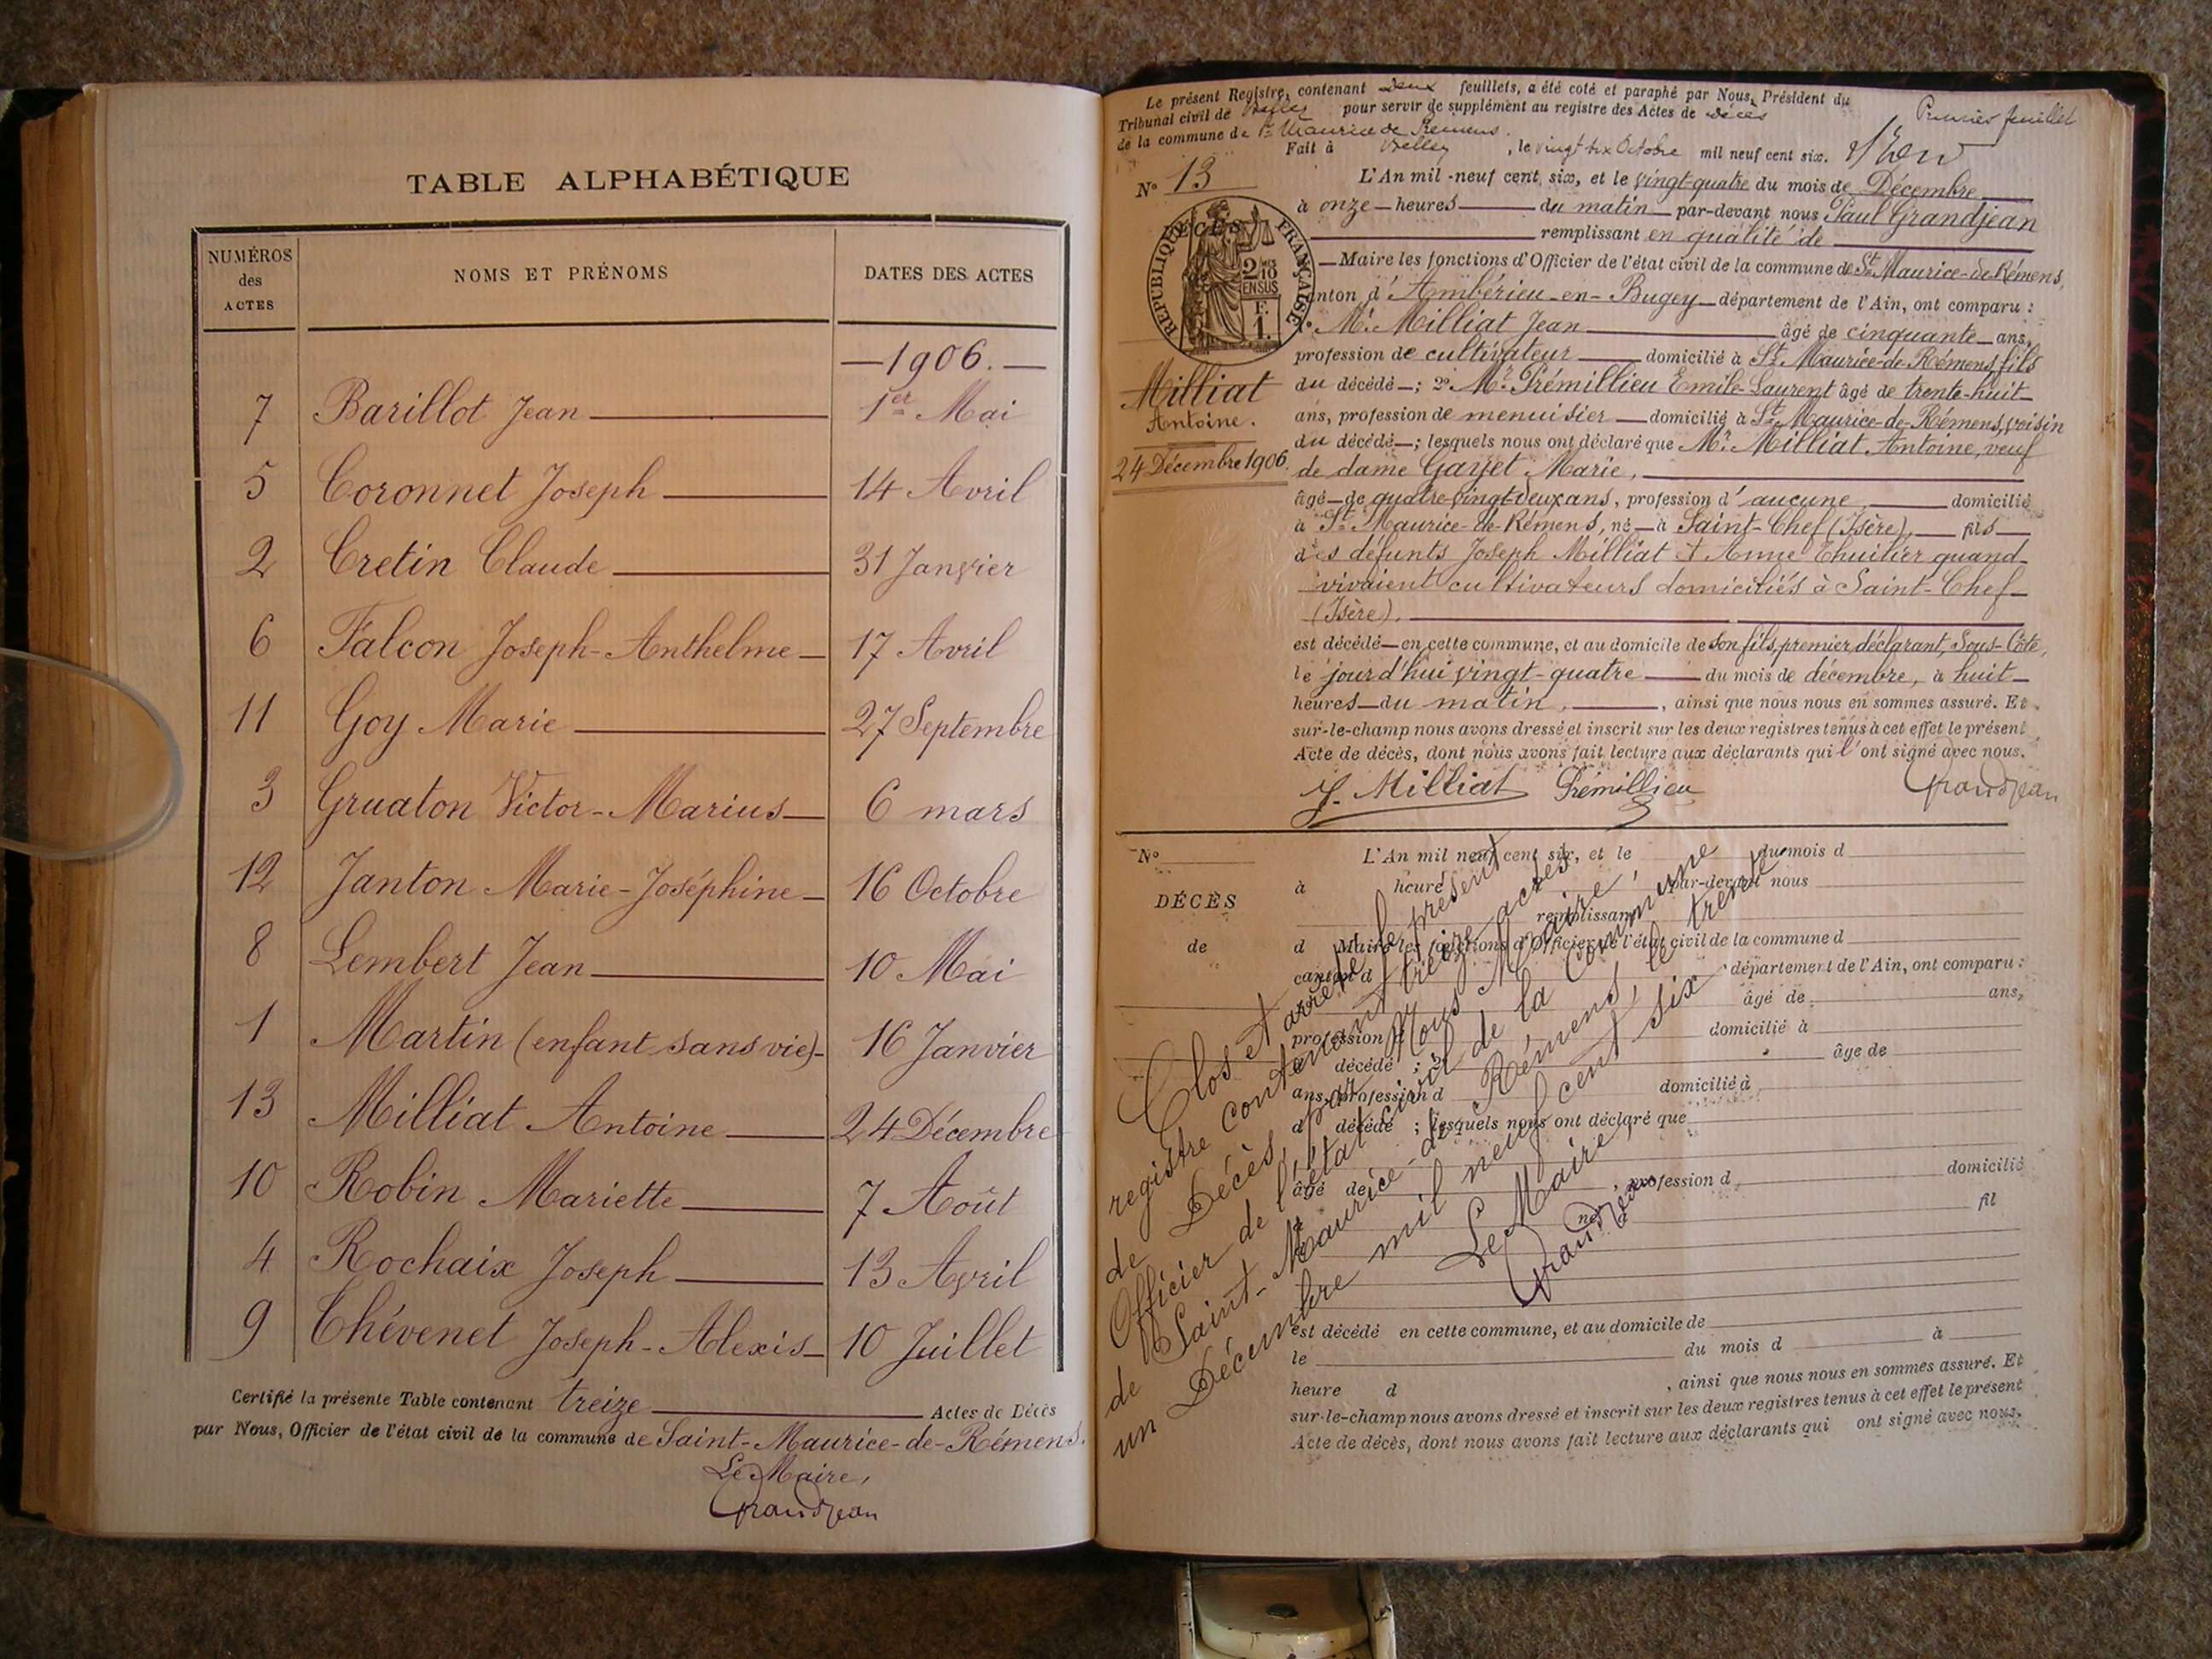 TABLE ALPHABÉTIQUE
NUMÉROS des ACTES
NOMS ET PRÉNOMS
DATES DES ACTES
—1906.—
7 Barillot Jean 1er Mai
5 Coronnet Joseph 14 Avril
2 Cretin Claude 31 Janvier
6 Falcon Joseph-Anthelme 17 Avril
11 Goy Marie 27 Septembre
3 Gruaton Victor-Marius 6 mars
12 Janton Marie-Joséphine 16 Octobre
8 Lembert Jean 10 Mai
1 Martin (enfant sans vie) 16 Janvier
13 Milliat Antoine 24 Décembre
10 Robin Mariette 7 Août
4 Rochaix Joseph 13 Avril
9 Thévenet Joseph-Alexis 10 Juillet
Certifié la présente Table contenant treize Actes de Décès
par Nous, Officier de l'état civil de la commune de Saint-Maurice-de-Rémens.
Le Maire,
Grandjean
Le présent Registre, contenant deux feuillets, a été coté et paraphé par Nous, Président du
Tribunal civil de Belley pour servir de supplément au registre des Actes de décès
de la commune de St Maurice de Remens.
Fait à Belley, le vingt six Octobre mil neuf cent six.
Premier feuillet
N° 13
RÉPUBLIQUE FRANÇAISE
2/10 EN SUS
F. 1.
Milliat
Antoine.
24 Décembre 1906
L'An mil neuf cent six, et le vingt-quatre du mois de Décembre
à onze heures du matin par-devant nous Paul Grandjean
remplissant en qualité de
Maire les fonctions d'Officier de l'état civil de la commune de St Maurice-de-Rémens,
canton d'Ambérieu-en-Bugey département de l'Ain, ont comparu :
1° Mr. Milliat Jean âgé de cinquante ans,
profession de cultivateur domicilié à St Maurice-de-Rémens, fils
du décédé ; 2° Mr. Prémillieu Emile-Laurent âgé de trente-huit
ans, profession de menuisier domicilié à St Maurice-de-Rémens, voisin
du décédé ; lesquels nous ont déclaré que Mr. Milliat Antoine, veuf
de dame Gayet Marie,
âgé de quatre-vingt-deux ans, profession d'aucune, domicilié
à St Maurice-de-Rémens, né à Saint-Chef (Isère), fils
des défunts Joseph Milliat et Anne Thuilier quand
vivaient cultivateurs domiciliés à Saint-Chef
(Isère),
est décédé en cette commune, et au domicile de son fils, premier déclarant, Sous-Côte,
le jourd'hui vingt-quatre du mois de décembre, à huit
heures du matin, ainsi que nous nous en sommes assuré. Et
sur-le-champ nous avons dressé et inscrit sur les deux registres tenus à cet effet le présent
Acte de décès, dont nous avons fait lecture aux déclarants qui l'ont signé avec nous.
J. Milliat Prémillieu Grandjean
N°
DÉCÈS
de
L'An mil neuf cent six, et le du mois d
à heure par-devant nous
remplissant
d Maire les fonctions d'Officier de l'état civil de la commune d
canton d département de l'Ain, ont comparu :
âgé de ans,
profession d domicilié à
décédé ; 2° âgé de
ans, profession d domicilié à
d décédé ; lesquels nous ont déclaré que
âgé de , profession d domicilié
né à fil
est décédé en cette commune, et au domicile de
le du mois d à
heure d , ainsi que nous nous en sommes assuré. Et
sur-le-champ nous avons dressé et inscrit sur les deux registres tenus à cet effet le présent
Acte de décès, dont nous avons fait lecture aux déclarants qui ont signé avec nous.
Clos et arrêté le présent
registre contenant treize actes
de Décès, par Nous Maire,
Officier de l'état civil de la commune
de Saint-Maurice-de-Rémens, le trente
un Décembre mil neuf cent six
Le Maire,
Grandjean